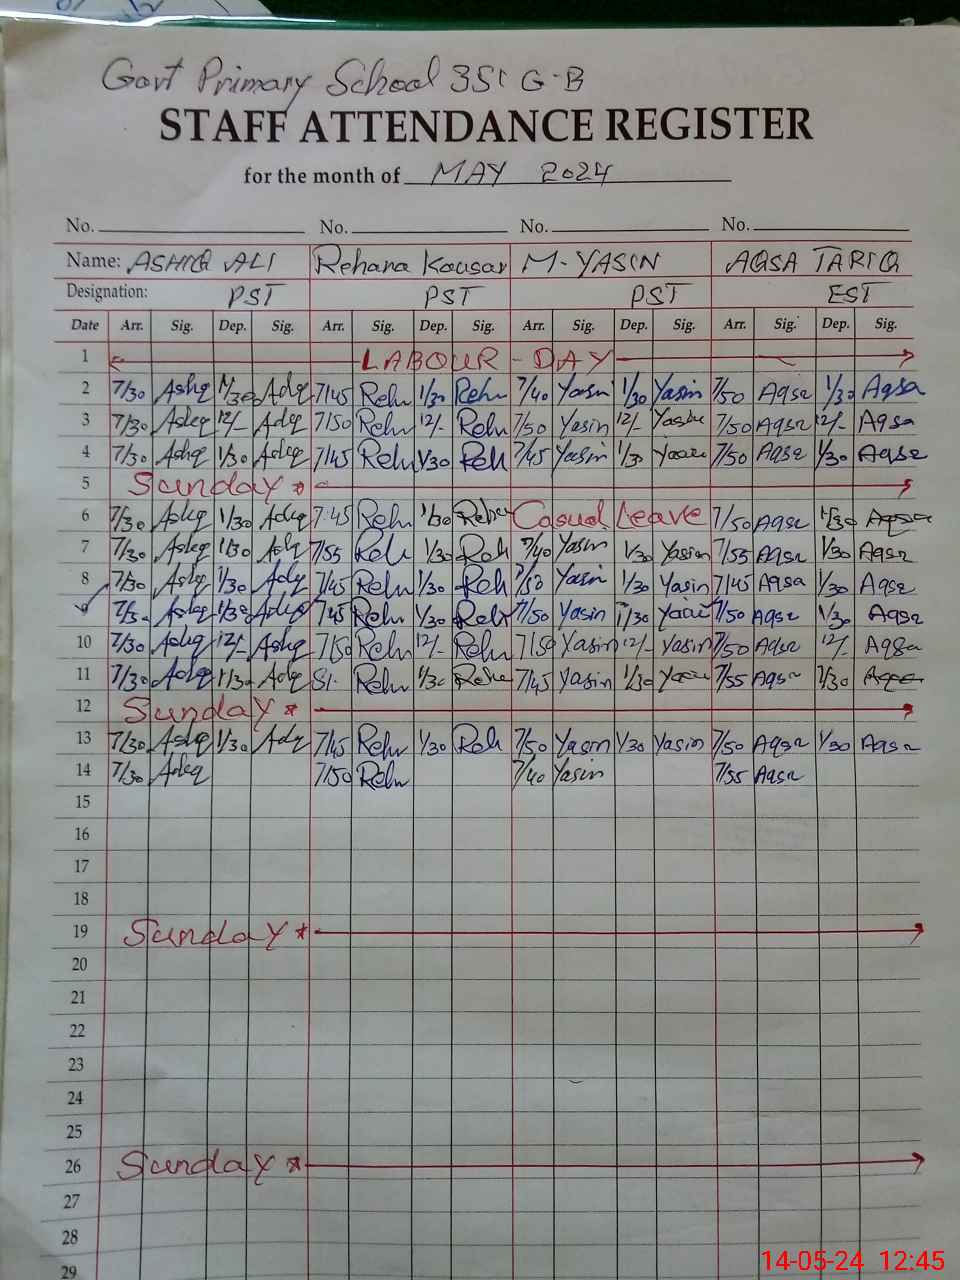 Govt Primary School 351 G-B
STAFF ATTENDANCE REGISTER
for the month of MAY 2024
No. No. No. No.
Name: ASHIQ ALI Rehana Kousar M-YASIN AQSA TARIQ
Designation: PST PST PST EST
Date Arr. Sig. Dep. Sig. Arr. Sig. Dep. Sig. Arr. Sig. Dep. Sig. Arr. Sig. Dep. Sig.
1 LABOUR-DAY
2 7/30 Ashq 1/30 Ashq 7/45 Rehn 1/30 Rehn 7/40 Yasin 1/30 Yasin 7/50 Aqsa 1/30 Aqsa
3 7/30 Ashq 12/- Ashq 7/50 Rehn 12/- Rehn 7/50 Yasin 12/- 7/50 Aqsa 12/- Aqsa
4 7/30 Ashq 1/30 Ashq 7/45 Rehn 1/30 Reh 7/45 Yasin 1/30 7/50 Aqsa 1/30 Aqsa
5 Sunday *
6 7/30 Ashq 1/30 Ashq 7:45 Rehn 1/30 Casual Leave 7/50 Aqsa 1/30 Aqsa
7 7/30 Ashq 1/30 7/55 Reh 1/30 Reh 7/40 Yasin 1/30 Yasin 7/55 Aqsa 1/30 Aqsa
8 7/30 Ashq 1/30 7/45 Rehn 1/30 Reh 7/50 Yasin 1/30 Yasin 7/45 Aqsa 1/30 Aqsa
7/30 Ashq 1/30 Ashq 7/45 Rehn 1/30 Reh 7/50 Yasin 1/30 7/50 Aqsa 1/30 Aqsa
10 7/30 Ashq 12/- Ashq 7/50 Rehn 12/- Rehn 7/50 Yasin 12/- Yasin 7/50 Aqsa 12/- Aqsa
11 7/30 Ashq 1/30 Ashq 8/- Rehn 1/30 7/45 Yasin 1/30 7/55 Aqsa 1/30
12 Sunday *
13 7/30 Ashq 1/30 7/45 Rehn 1/30 Reh 7/50 Yasin 1/30 Yasin 7/50 Aqsa 1/30 Aqsa
14 7/30 Ashq 7/50 Rehn 7/40 Yasin 7/55 Aqsa
15
16
17
18
19 Sunday *
20
21
22
23
24
25
26 Sunday *
27
28
29
14-05-24 12:45